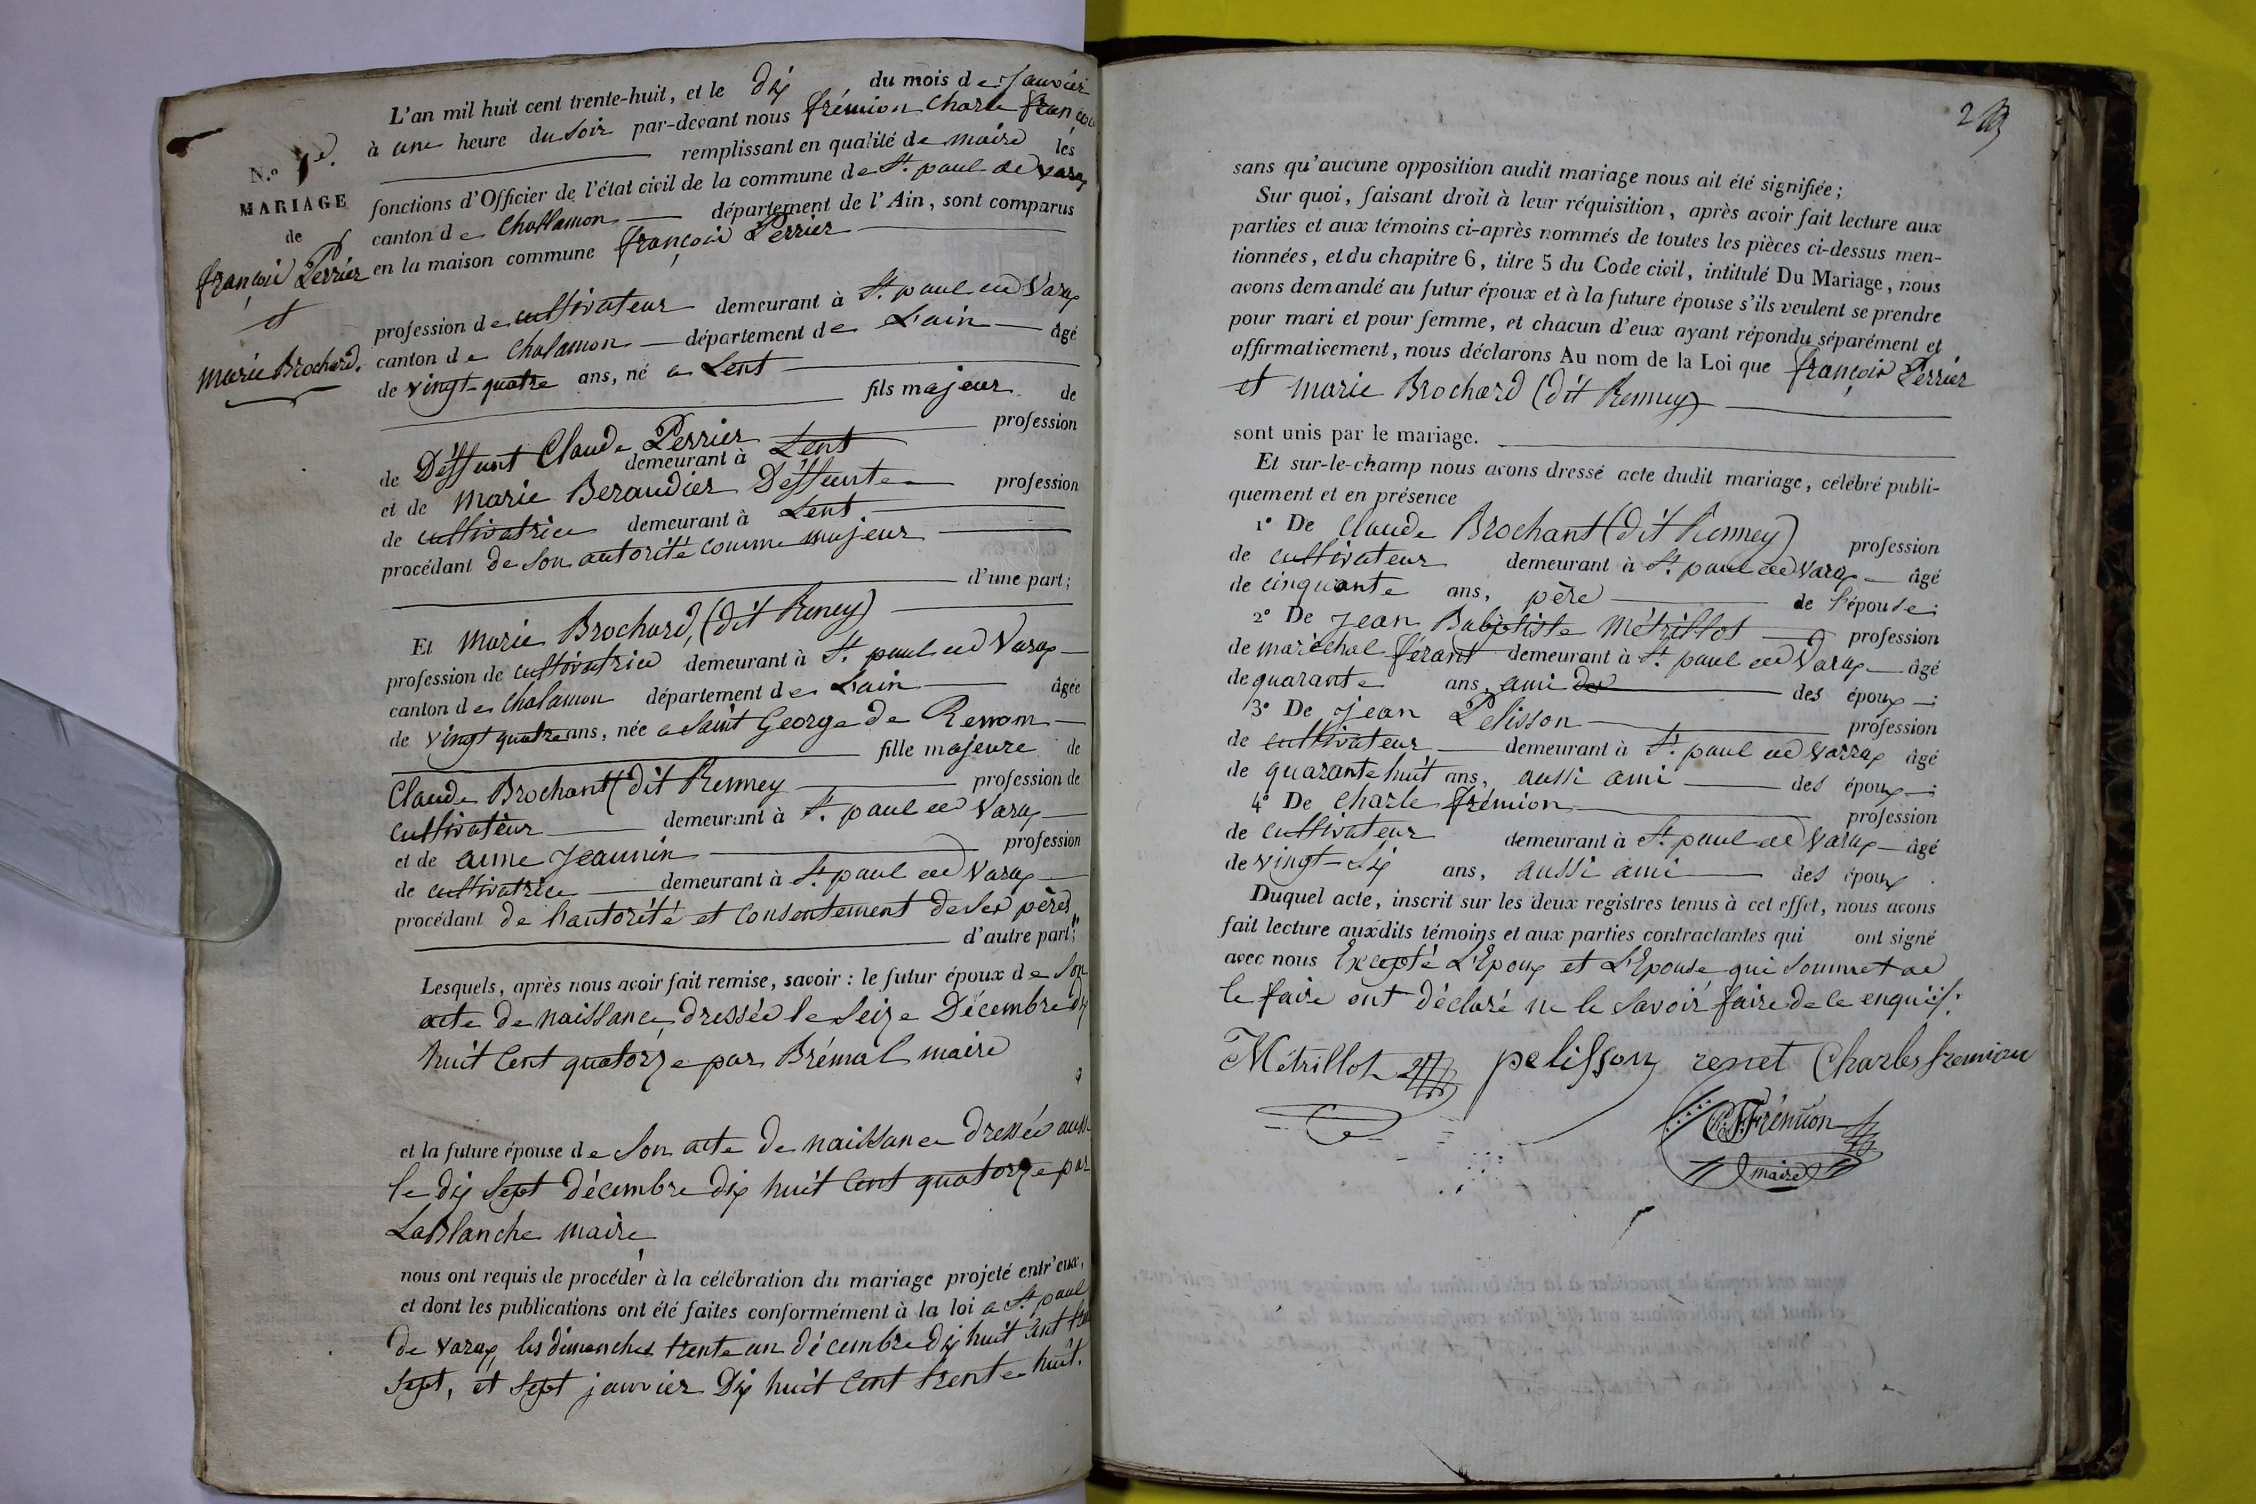 L'an mil huit cent trente-huit, et le dix du mois de Janvier
à une heure du soir par-devant nous frémion Charle françois
remplissant en qualité de maire les
fonctions d'Officier de l'état civil de la commune de St. paul de varax
canton de Challamon département de l'Ain, sont comparus
en la maison commune françois Perrier
N.o 1er.
MARIAGE
de
françois Perrier
et
Marie Brochard.
profession de cultivateur demeurant à St. paul de Varax
canton de Chalamon département de L'ain âgé
de vingt-quatre ans, né a Lent
fils majeur de
profession
de Déffunt Claude Perrier
demeurant à Lent
et de Marie Beraudier Déffunte profession
de cultivatrice demeurant à Lent
procédant de son autorité comme majeur
d'une part;
Et Marie Brochard, (dit Reney)
profession de cultivatrice demeurant à St. paul de Varax
canton de Chalamon département de L'ain âgée
de vingt quatre ans, née a Saint George de Renom
fille majeure de
Claude Brochant (dit Renney profession de
cultivateur demeurant à St. paul de Varax
et de anne Jeannin profession
de cultivatrice demeurant à St. paul de Varax
procédant de l'autorité et consentement de ses pères
d'autre part;
Lesquels, après nous avoir fait remise, savoir: le futur époux de son
acte de naissance dressée le seize Décembre dix
huit cent quatorze par Brémal maire
et la future épouse de son acte de naissance dressée aussi
le dix sept décembre dix huit cent quatorze par
LaBlanche maire
nous ont requis de procéder à la célébration du mariage projeté entr'eux,
et dont les publications ont été faites conformément à la loi a St. paul
de varax, les dimanches trente un décembre dix huit cent trente
sept, et sept janvier dix huit cent trente huit.
2
sans qu'aucune opposition audit mariage nous ait été signifiée;
Sur quoi, faisant droit à leur réquisition, après avoir fait lecture aux
parties et aux témoins ci-après nommés de toutes les pièces ci-dessus men-
tionnées, et du chapitre 6, titre 5 du Code civil, intitulé Du Mariage, nous
avons demandé au futur époux et à la future épouse s'ils veulent se prendre
pour mari et pour femme, et chacun d'eux ayant répondu séparément et
affirmativement, nous déclarons Au nom de la Loi que françois Perrier
et marie Brochard (dit Renney)
sont unis par le mariage.
Et sur-le-champ nous avons dressé acte dudit mariage, célébré publi-
quement et en présence
1° De Claude Brochant (dit Renney) profession
de cultivateur demeurant à St. paul de varax âgé
de cinquante ans, père de l'épouse;
2° De Jean Babptiste Métrillot profession
de maréchal férant demeurant à St. paul de Varax âgé
de quarante ans, ami des époux;
3° De Jean Pelisson profession
de cultivateur demeurant à St. paul de varrax âgé
de quarante huit ans, aussi ami des époux;
4° De Charle frémion profession
de cultivateur demeurant à St. paul de Varax âgé
de vingt-six ans, aussi ami des époux.
Duquel acte, inscrit sur les deux registres tenus à cet effet, nous avons
fait lecture auxdits témoins et aux parties contractantes qui ont signé
avec nous Excepté L'Epoux et L'Epouse qui sommet de
le faire ont déclaré ne le savoir faire de ce enquis.
Métrillot pelisson renet Charles fremion
C. F. Frémion
maire